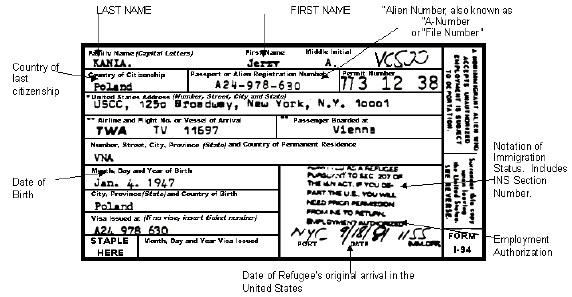 LAST NAME
FIRST NAME
"Alien Number, also known as
"A-Number
or "File Number"
Family Name (Capital Letters) First Name Middle Initial
KANIA. Jerzy A.
Country of
last
citizenship
Country of Citizenship Passport or Alien Registration Number Permit Number
Poland A24-978-630 773 12 38
United States Address (Number, Street, City and State)
USCC, 1250 Broadway, New York, N.Y. 10001
** Airline and Flight No. or Vessel of Arrival ** Passenger Boarded at
TWA TV 11697 Vienna
Number, Street, City, Province (State) and Country of Permanent Residence
VNA
Date of
Birth
Month, Day and Year of Birth
Jan. 4. 1947
City, Province (State) and Country of Birth
Poland
Visa Issued at (If no visa, insert ticket number)
A24 978 630
STAPLE
HERE
Month, Day and Year Visa Issued
AS A REFUGEE
PURSUANT TO SEC 207 OF
THE I&N ACT. IF YOU DE-
PART THE U.S. YOU WILL
NEED PRIOR PERMISSION
FROM INS TO RETURN.
EMPLOYMENT AUTHORIZED
NYC 9/18/81 1155
PORT DATE
A NONIMMIGRANT ALIEN WHO
ACCEPTS UNAUTHORIZED
EMPLOYMENT IS SUBJECT
TO DEPORTATION.
Surrender this copy
when leaving
the United States.
SEE REVERSE.
FORM
I-94
Notation of
Immigration
Status. Includes
INS Section
Number.
Employment
Authorization
Date of Refugee's original arrival in the
United States